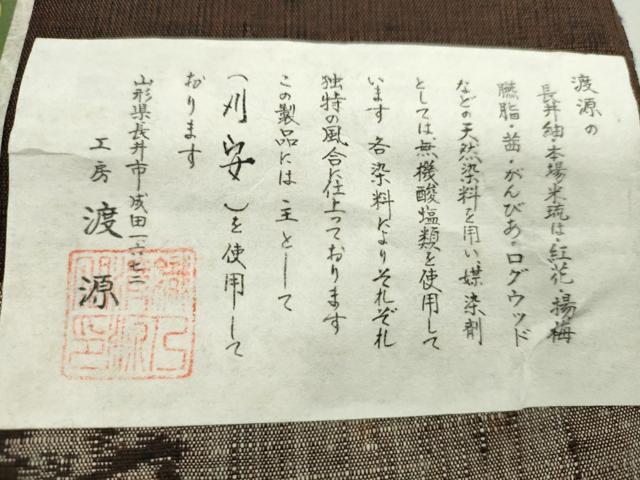 渡源の
長井紬・本場米琉は・紅花・揚梅
臙脂・茜・がんびあ・ログウッド
などの天然染料を用い媒染剤
としては無機酸塩類を使用して
います 各染料によりそれぞれ
独特の風合に仕上っております
この製品には 主として
（刈安）を使用して
おります
山形県長井市成田一六七二
工房 渡源